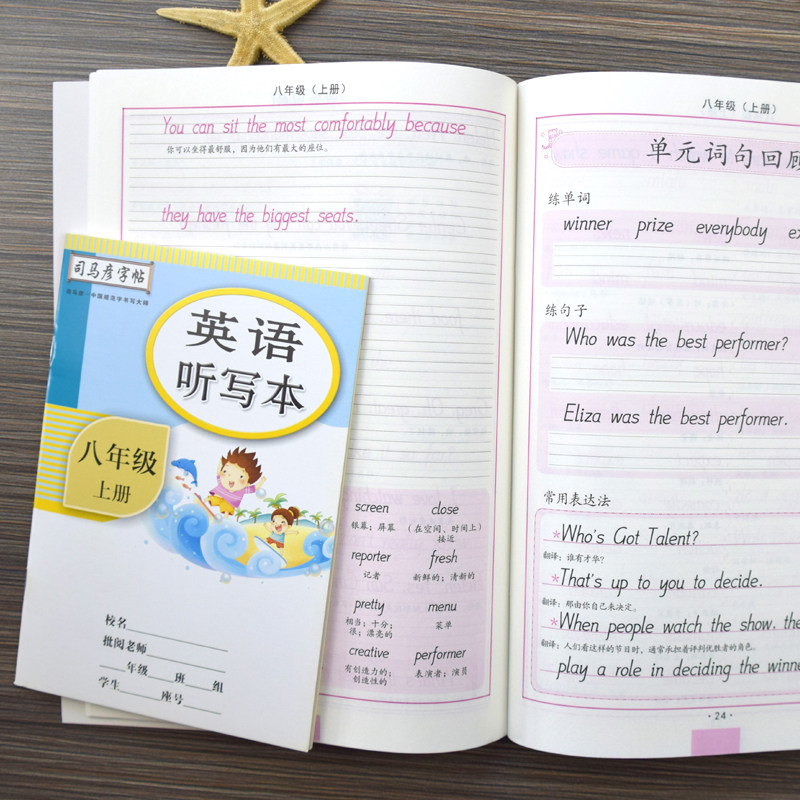 八年级（上册）
You can sit the most comfortably because
你可以坐得最舒服，因为他们有最大的座位。
they have the biggest seats.
screen close
银幕；屏幕 （在空间、时间上）
接近
reporter fresh
记者 新鲜的；清新的
pretty menu
相当；十分； 菜单
很；漂亮的
creative performer
有创造力的； 表演者；演员
创造性的
司马彦字帖
英语
听写本
八年级
上册
校名
批阅老师
年级 班 组
学生 座号
八年级（上册）
单元词句回顾
练单词
winner prize everybody
练句子
Who was the best performer?
Eliza was the best performer.
常用表达法
*Who's Got Talent?
翻译：谁有才华？
*That's up to you to decide.
翻译：那由你自己来决定。
*When people watch the show, the
翻译：人们看这样的节目时，通常承担着评判优胜者的角色。
play a role in deciding the winne
·24·